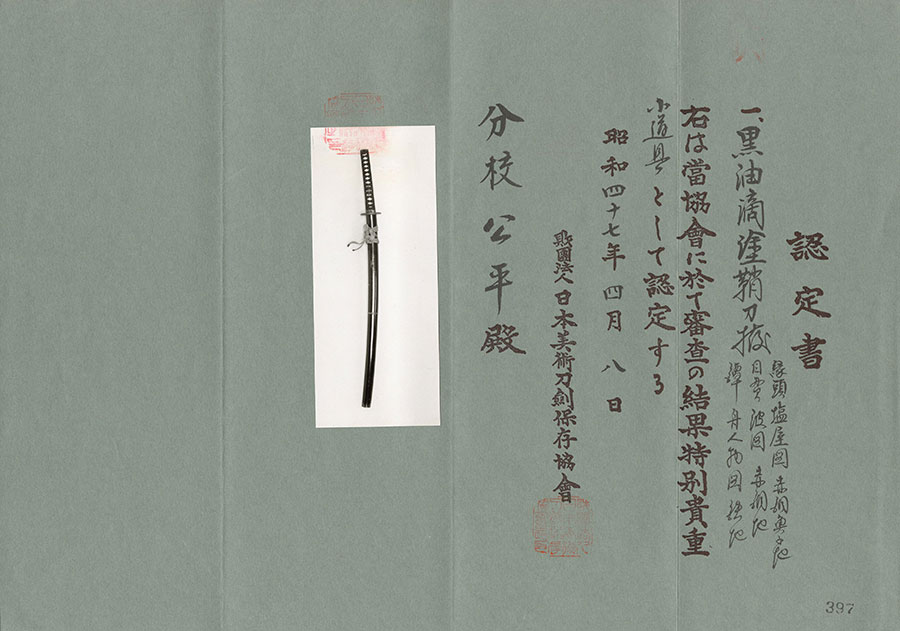 認定書
一、黒油滴塗鞘刀拵
縁頭 塩屋図 赤銅魚子地
目貫 波図 赤銅地
鐔 舟人物図 鉄地
右は當協會に於て審査の結果特別貴重
小道具として認定する
昭和四十七年四月八日
財團法人日本美術刀劍保存協會
分校公平殿
397